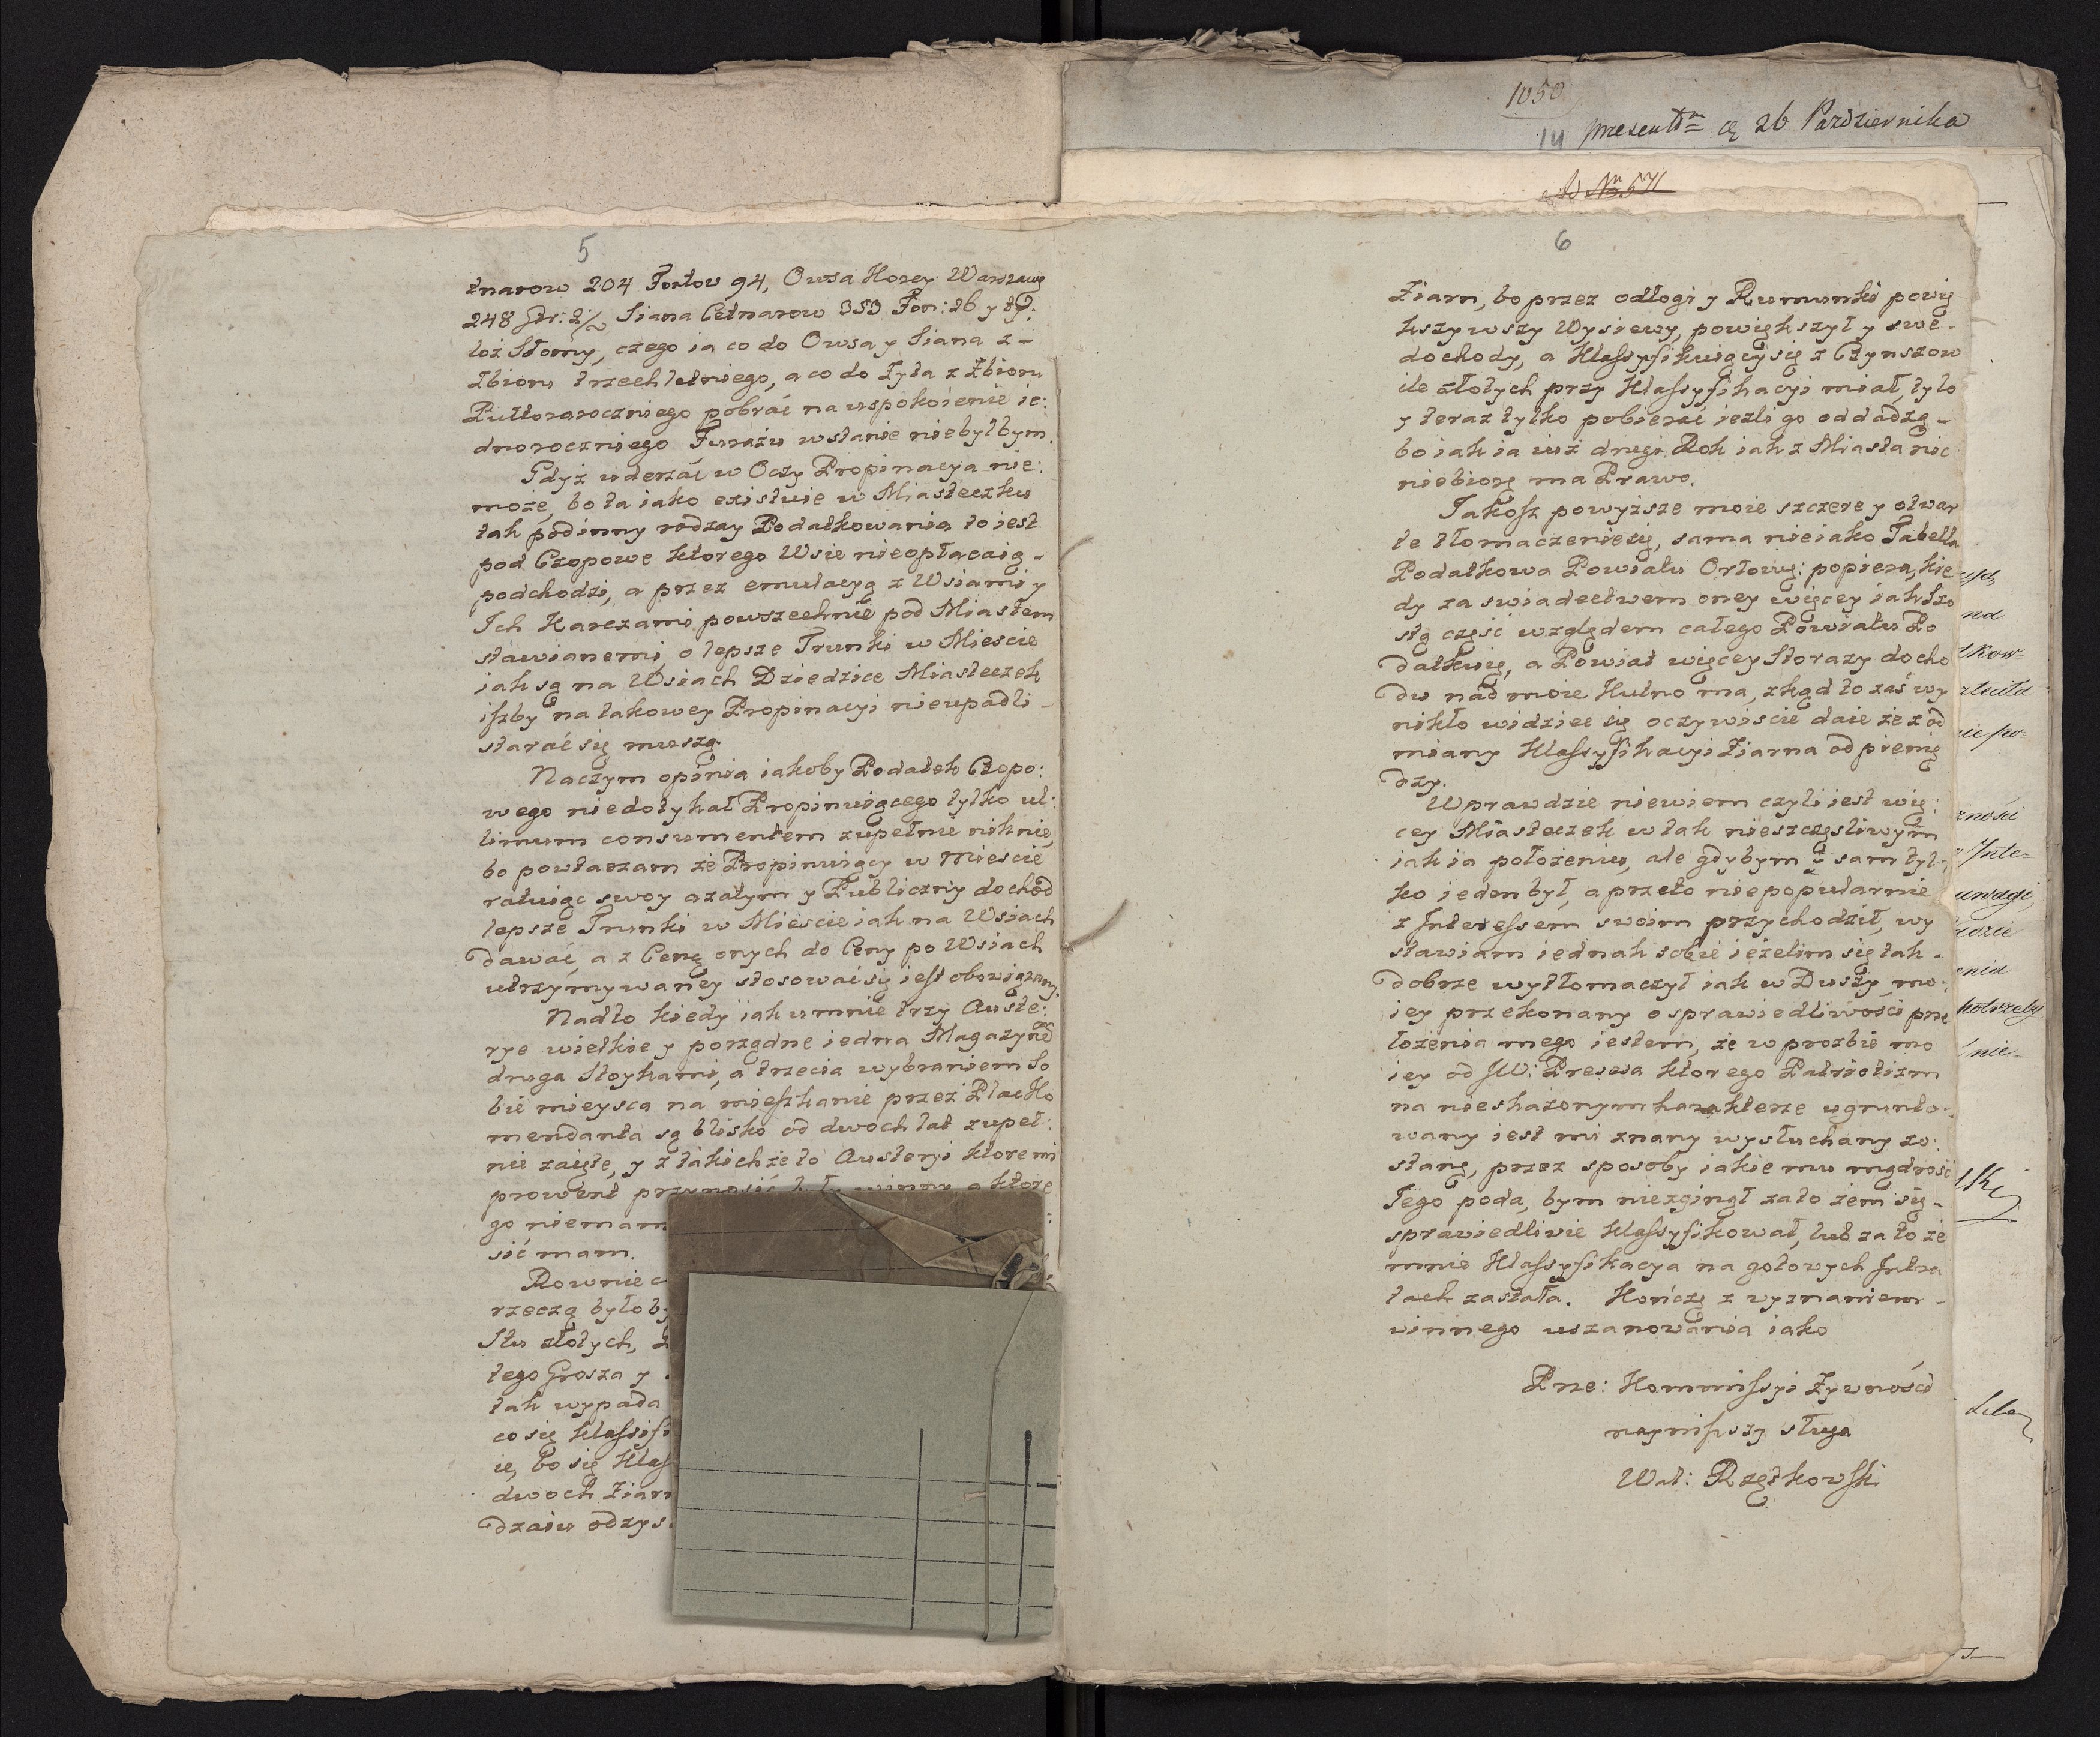 1050
14 presentm cę 26 Pazdziernika
Ad Nm 571
5
tnarow 204 Fontow 94, Owsa Korcy Warszaws
248 Gar: 2 1/2 Siana Cetnarow 353 Fon: 26 y tyż
loż Słomy, czego ia co do Owsa y Siana z
Zbioru trzechletniego, a co do Żyta z Zbioru
Pułtoraroczniego pobrać na uspokoienie ie:
dnoroczniego Furażu w stanie niebyłbym.
Gdyż uderzać w Oczy Propinacya nie:
może, bo ta iako existuie w Miasteczku
tak pod inny rodzay Podatkowania to iest
pod Czopowe ktorego Wsie nieopłacaią
podchodzi, a przez emulacyą z Wsiami y
Ich Karczami powszechnie pod Miastem
stawianemi, o lepsze Trunki w Mieście
iak są na Wsiach Dziedzice Miasteczek
iżby na takowey Propinacyi nieupadli
starać się muszą.
Naczym opinia iakoby Podatek Czopo:
wego niedotykał Propinuiącego tylko ul:
timum consumentem zupełnie niknie,
bo powtarzam że Propinuiący w Mieście
ratuiąc swoy a zatym y Publiczny dochod
lepsze Trunki w Mieście iak na Wsiach
dawać, a z Ceną onych do Ceny po Wsiach
utrzymywaney stosować się iest obowiązany.
Nadto kiedy iak u mnie trzy Auste:
rye wielkie y porządne iedna Magazynem
druga Stoykami, a trzecia wybraniem So
bie mieysca na mieszkanie przez Plac Ko
mendanta są blisko od dwoch lat zupeł:
nie zaięte, y z takich że to Austeryi ktore mi
prowent przynosić były winny a ktore
go niemam
sić mam.
Rownie
rzeczą byłoby
Stu złotych,
tego Grosza y
tak wypada
co się klassifi
ie, bo się Klas
dwoch Ziarn
dzaiu odzys
6
Ziarn, bo przez odłogi y Rumunki powię
kszywszy Wysiewy, powiększył y swe
dochody, a Klassyfikuiący się z Czynszow
ile złotych przy Klassyfikacyi miał, tylo
y teraz tylko pobierać iezli go oddadzą
bo iak ia iuż drugi Rok iak z Miasta nic
niebiorę ma Prawo.
Jakosz powyższe moie szczere y otwar
te tłomaczenie się, sama nieiako Tabella
Podatkowa Powiatu Orłows: popiera, kie
dy za swiadectwem oney więcey iak Szo
stą część względem całego Powiatu Po
datkuię, a Powiat więcey Storazy docho
du nad moie Kutno ma, zkąd to zaś wy
nikło widzieć się oczywiście daie że z od
miany Klassyfikacyi Ziarna od pienię
dzy.
Wprawdzie niewiem czyli iest wię:
cey Miasteczek w tak nieszczęsliwym
iak ia położeniu, ale gdybym y sam tyl:
ko ieden był, a przeto niepopularnie
z Interessem swoim przychodził, wy
stawiam iednak sobie ieżelim się tak
dobrze wytłomaczył iak w Duszy mo:
iey przekonany o sprawiedliwości prze
łożenia mego iestem, że w prozbie mo
iey od JW: Presesa ktorego Patriotizm
na nieskażonym karakterze ugrunto:
wany iest mi znany wysłuchany zo:
stanę, przez sposoby iakie mu mądrość
Jego poda, bym niezginął za to żem się
sprawiedliwie Klassyfikował, lub za to że
mnie Klassyfikacya na gotowych Intra
tach zastała. Kończę z wyznaniem
winnego uszanowania iako
Prze: Kommissyi Żywności
nayniższy sługa
Wal: Rzętkowski
nd
tkow=
nie po=
zności
Inte=
uwagi,
będzie
enia
nie=